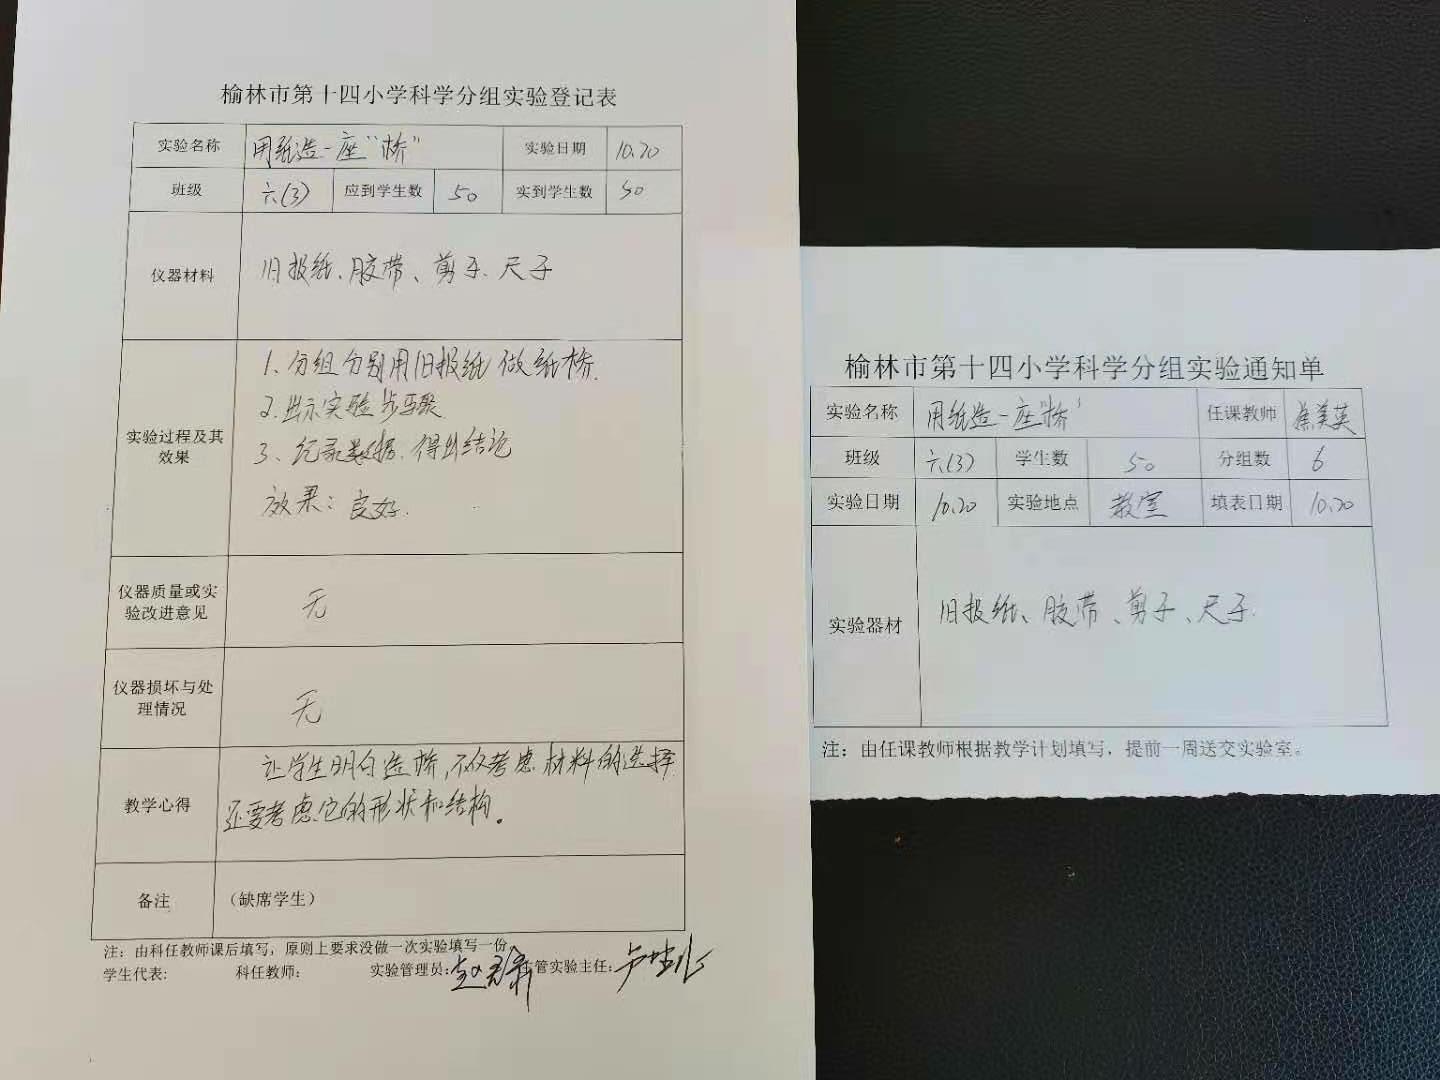 榆林市第十四小学科学分组实验登记表
实验名称 用纸造一座“桥” 实验日期 10.20
班级 六(3) 应到学生数 50 实到学生数 50
仪器材料 旧报纸、胶带、剪子、尺子
实验过程及其效果
1、分组分别用旧报纸做纸桥.
2.出示实验步骤
3、纪录数据.得出结论
效果：良好.
仪器质量或实验改进意见 无
仪器损坏与处理情况 无
教学心得
让学生明白造桥,不仅考虑材料的选择
还要考虑它的形状和结构。
备注 （缺席学生）
注：由科任教师课后填写，原则上要求没做一次实验填写一份
学生代表: 科任教师: 实验管理员: 管实验主任:
榆林市第十四小学科学分组实验通知单
实验名称 用纸造一座“桥” 任课教师 美英
班级 六(3) 学生数 50 分组数 6
实验日期 10.20 实验地点 教室 填表日期 10.20
实验器材 旧报纸、胶带、剪子、尺子.
注：由任课教师根据教学计划填写，提前一周送交实验室。